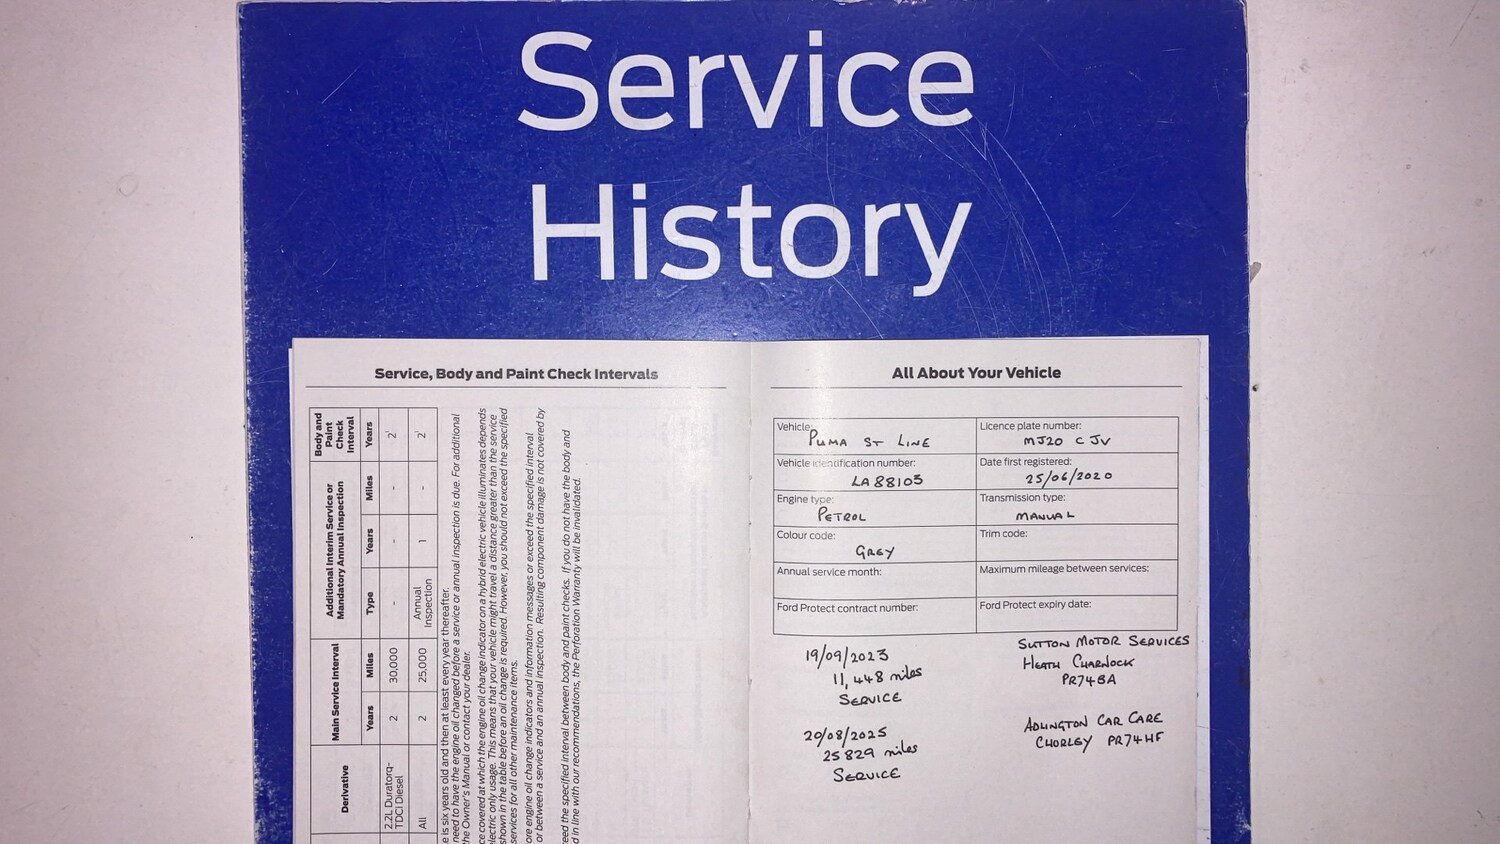 Service
History
Service, Body and Paint Check Intervals
Derivative
Main Service Interval
Additional Interim Service or
Mandatory Annual Inspection
Body and
Paint
Check
Interval
Years
Miles
Type
Years
Miles
Years
2.2L Duratorq-
TDCi Diesel
2
30,000
-
-
-
2¹
All
2
25,000
Annual
Inspection
1
-
2¹
e is six years old and then at least every year thereafter.
need to have the engine oil changed before a service or annual inspection is due. For additional
the Owner's Manual or contact your dealer.
ce covered at which the engine oil change indicator on a hybrid electric vehicle illuminates depends
lectric only usage. This means that your vehicle might travel a distance greater than the service
shown in the table before an oil change is required. However, you should not exceed the specified
services for all other maintenance items.
ore engine oil change indicators and information messages or exceed the specified interval
or between a service and an annual inspection. Resulting component damage is not covered by
eed the specified interval between body and paint checks. If you do not have the body and
d in line with our recommendations, the Perforation Warranty will be invalidated.
All About Your Vehicle
Vehicle:
PUMA ST LINE
Licence plate number:
MJ20 CJV
Vehicle identification number:
LA88105
Date first registered:
25/06/2020
Engine type:
PETROL
Transmission type:
MANUAL
Colour code:
GREY
Trim code:
Annual service month:
Maximum mileage between services:
Ford Protect contract number:
Ford Protect expiry date:
19/09/2023
11,448 miles
SERVICE
SUTTON MOTOR SERVICES
HEATH CHARNOCK
PR74BA
20/08/2025
25829 miles
SERVICE
ADLINGTON CAR CARE
CHORLEY PR74HF